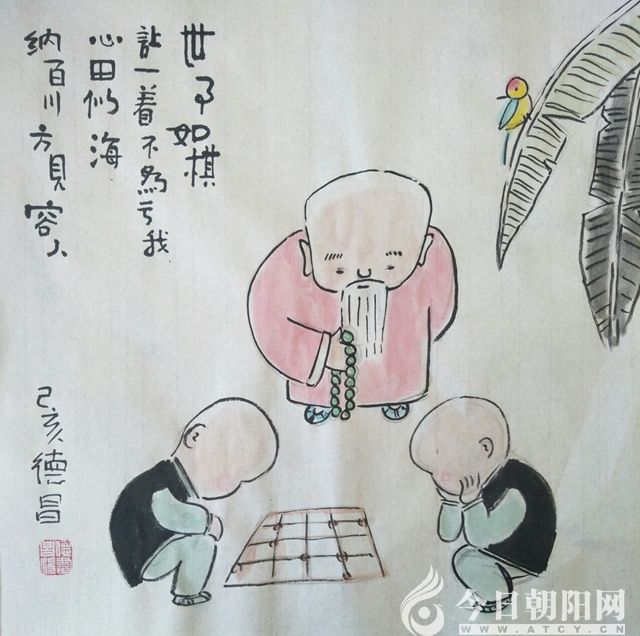 世事如棋
让一着不為亏我
心田似海
纳百川方見容人
己亥德昌
今日朝阳网
WWW.ATCY.CN